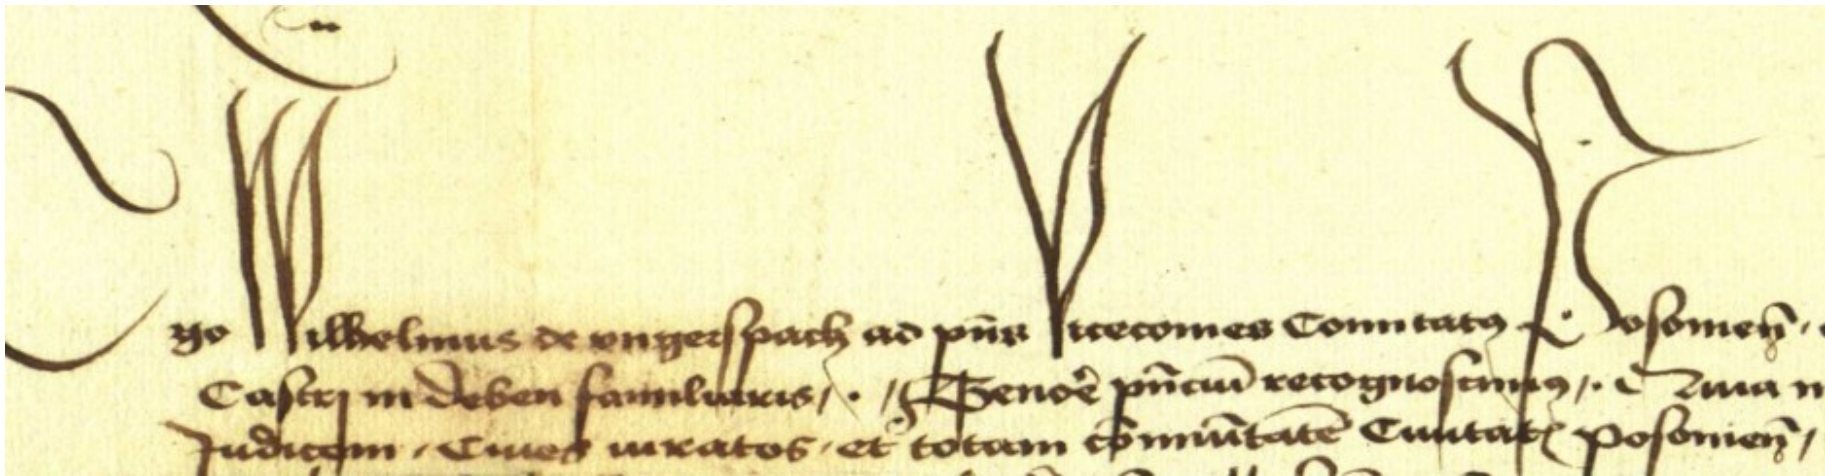 ygo Wilhelmus de vngerspach ad pn̄s Vicecomes Comitatus Posonien̄.
Castri in deben familiaris, Tenore pn̄ciū recognoscimus, Quia
Judicem Ciues iuratos et totam cōmūitatē Ciuitatis posonien̄